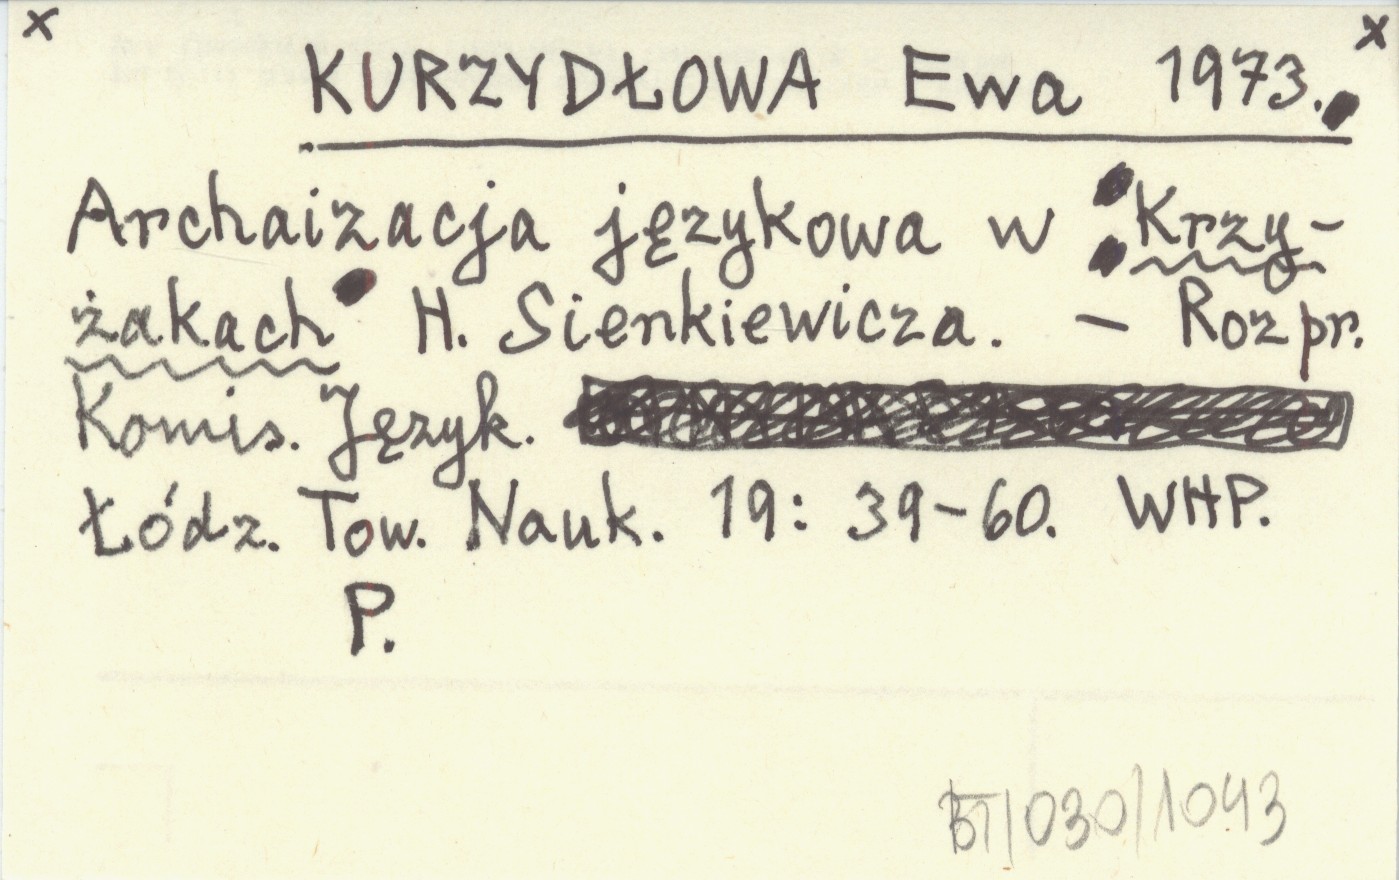 x x
KURZYDŁOWA Ewa 1973.
Archaizacja językowa w Krzy-
żakach H. Sienkiewicza. – Rozpr.
Komis. Język.
Łódz. Tow. Nauk. 19: 39–60. WHP.
P.
BT/030/1043